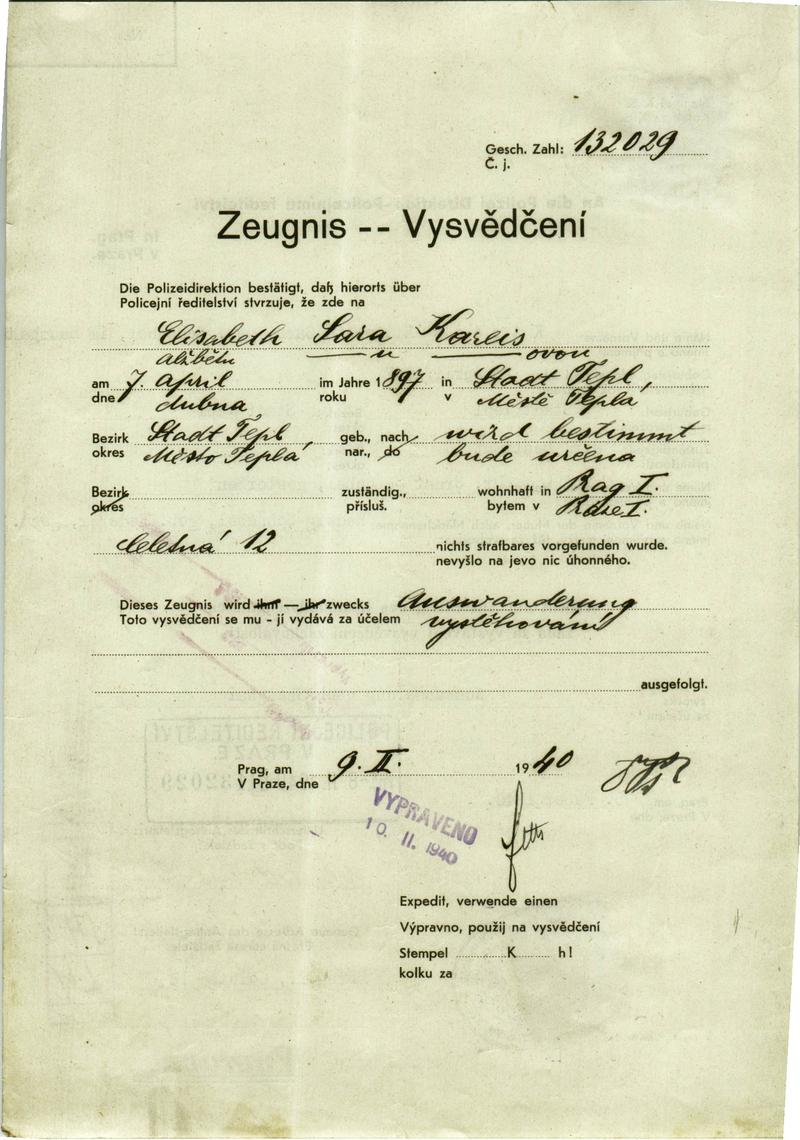 Gesch. Zahl: 132029
Č. j.
Zeugnis -- Vysvědčení
Die Polizeidirektion bestätigt, daß hierorts über
Policejní ředitelství stvrzuje, že zde na
Elisabeth Sara Kareis
Alžbětu — u — ovou
am 7. April im Jahre 1897 in Stadt Tepl,
dne dubna roku v Městě Tepla
Bezirk Stadt Tepl, geb., nach wird bestimmt
okres Město Teplá nar., do bude určena
Bezirk zuständig., wohnhaft in Prag I.
okres přísluš. bytem v Praze I.
Celetná 12 nichts strafbares vorgefunden wurde.
nevyšlo na jevo nic úhonného.
Dieses Zeugnis wird ihm — ihr zwecks Auswanderung
Toto vysvědčení se mu - jí vydává za účelem vystěhování
ausgefolgt.
Prag, am 9. II. 1940
V Praze, dne
VYPRAVENO
10. II. 1940
Expedit, verwende einen
Výpravno, použij na vysvědčení
Stempel K h!
kolku za